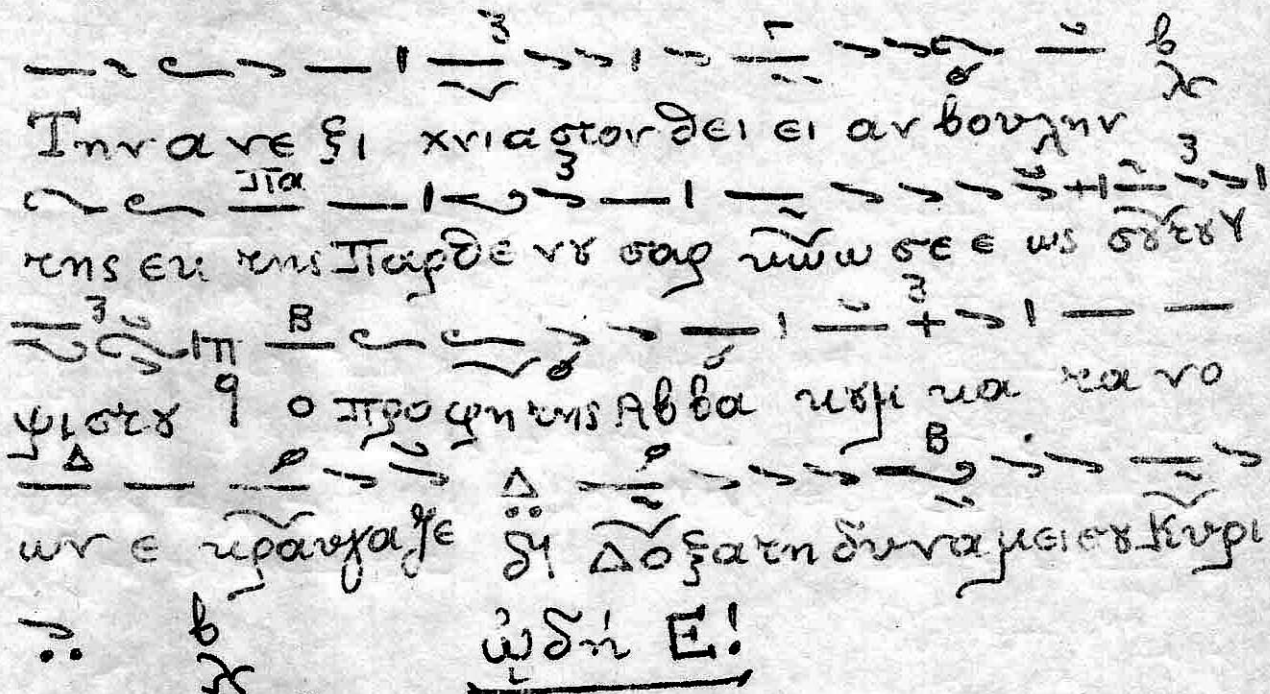 Την α νε ξι χνιαστον θει ει αν βουλην
της εκ της Παρθε νȣ σαρ κω ω σε ε ως σȣ τȣ Υ
ψιστȣ ο προφητης Αββα κȣμ κα τα νο
ων ε κραυγαζε Δοξα τη δυναμει σȣ Κυρι
ᾠδή Ε!